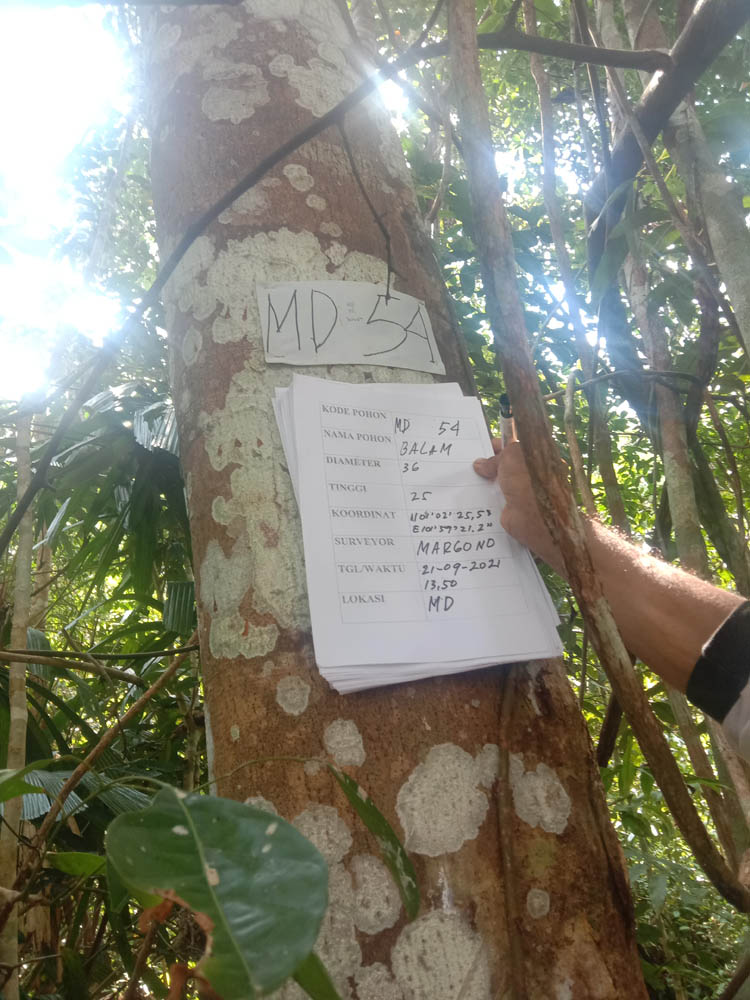 MD 54
KODE POHON MD 54
NAMA POHON BALAM
DIAMETER 36
TINGGI 25
KOORDINAT N 01°02' 25,53
E 101°59' 21.2"
SURVEYOR MARGONO
TGL/WAKTU 21-09-2021
13,50
LOKASI MD